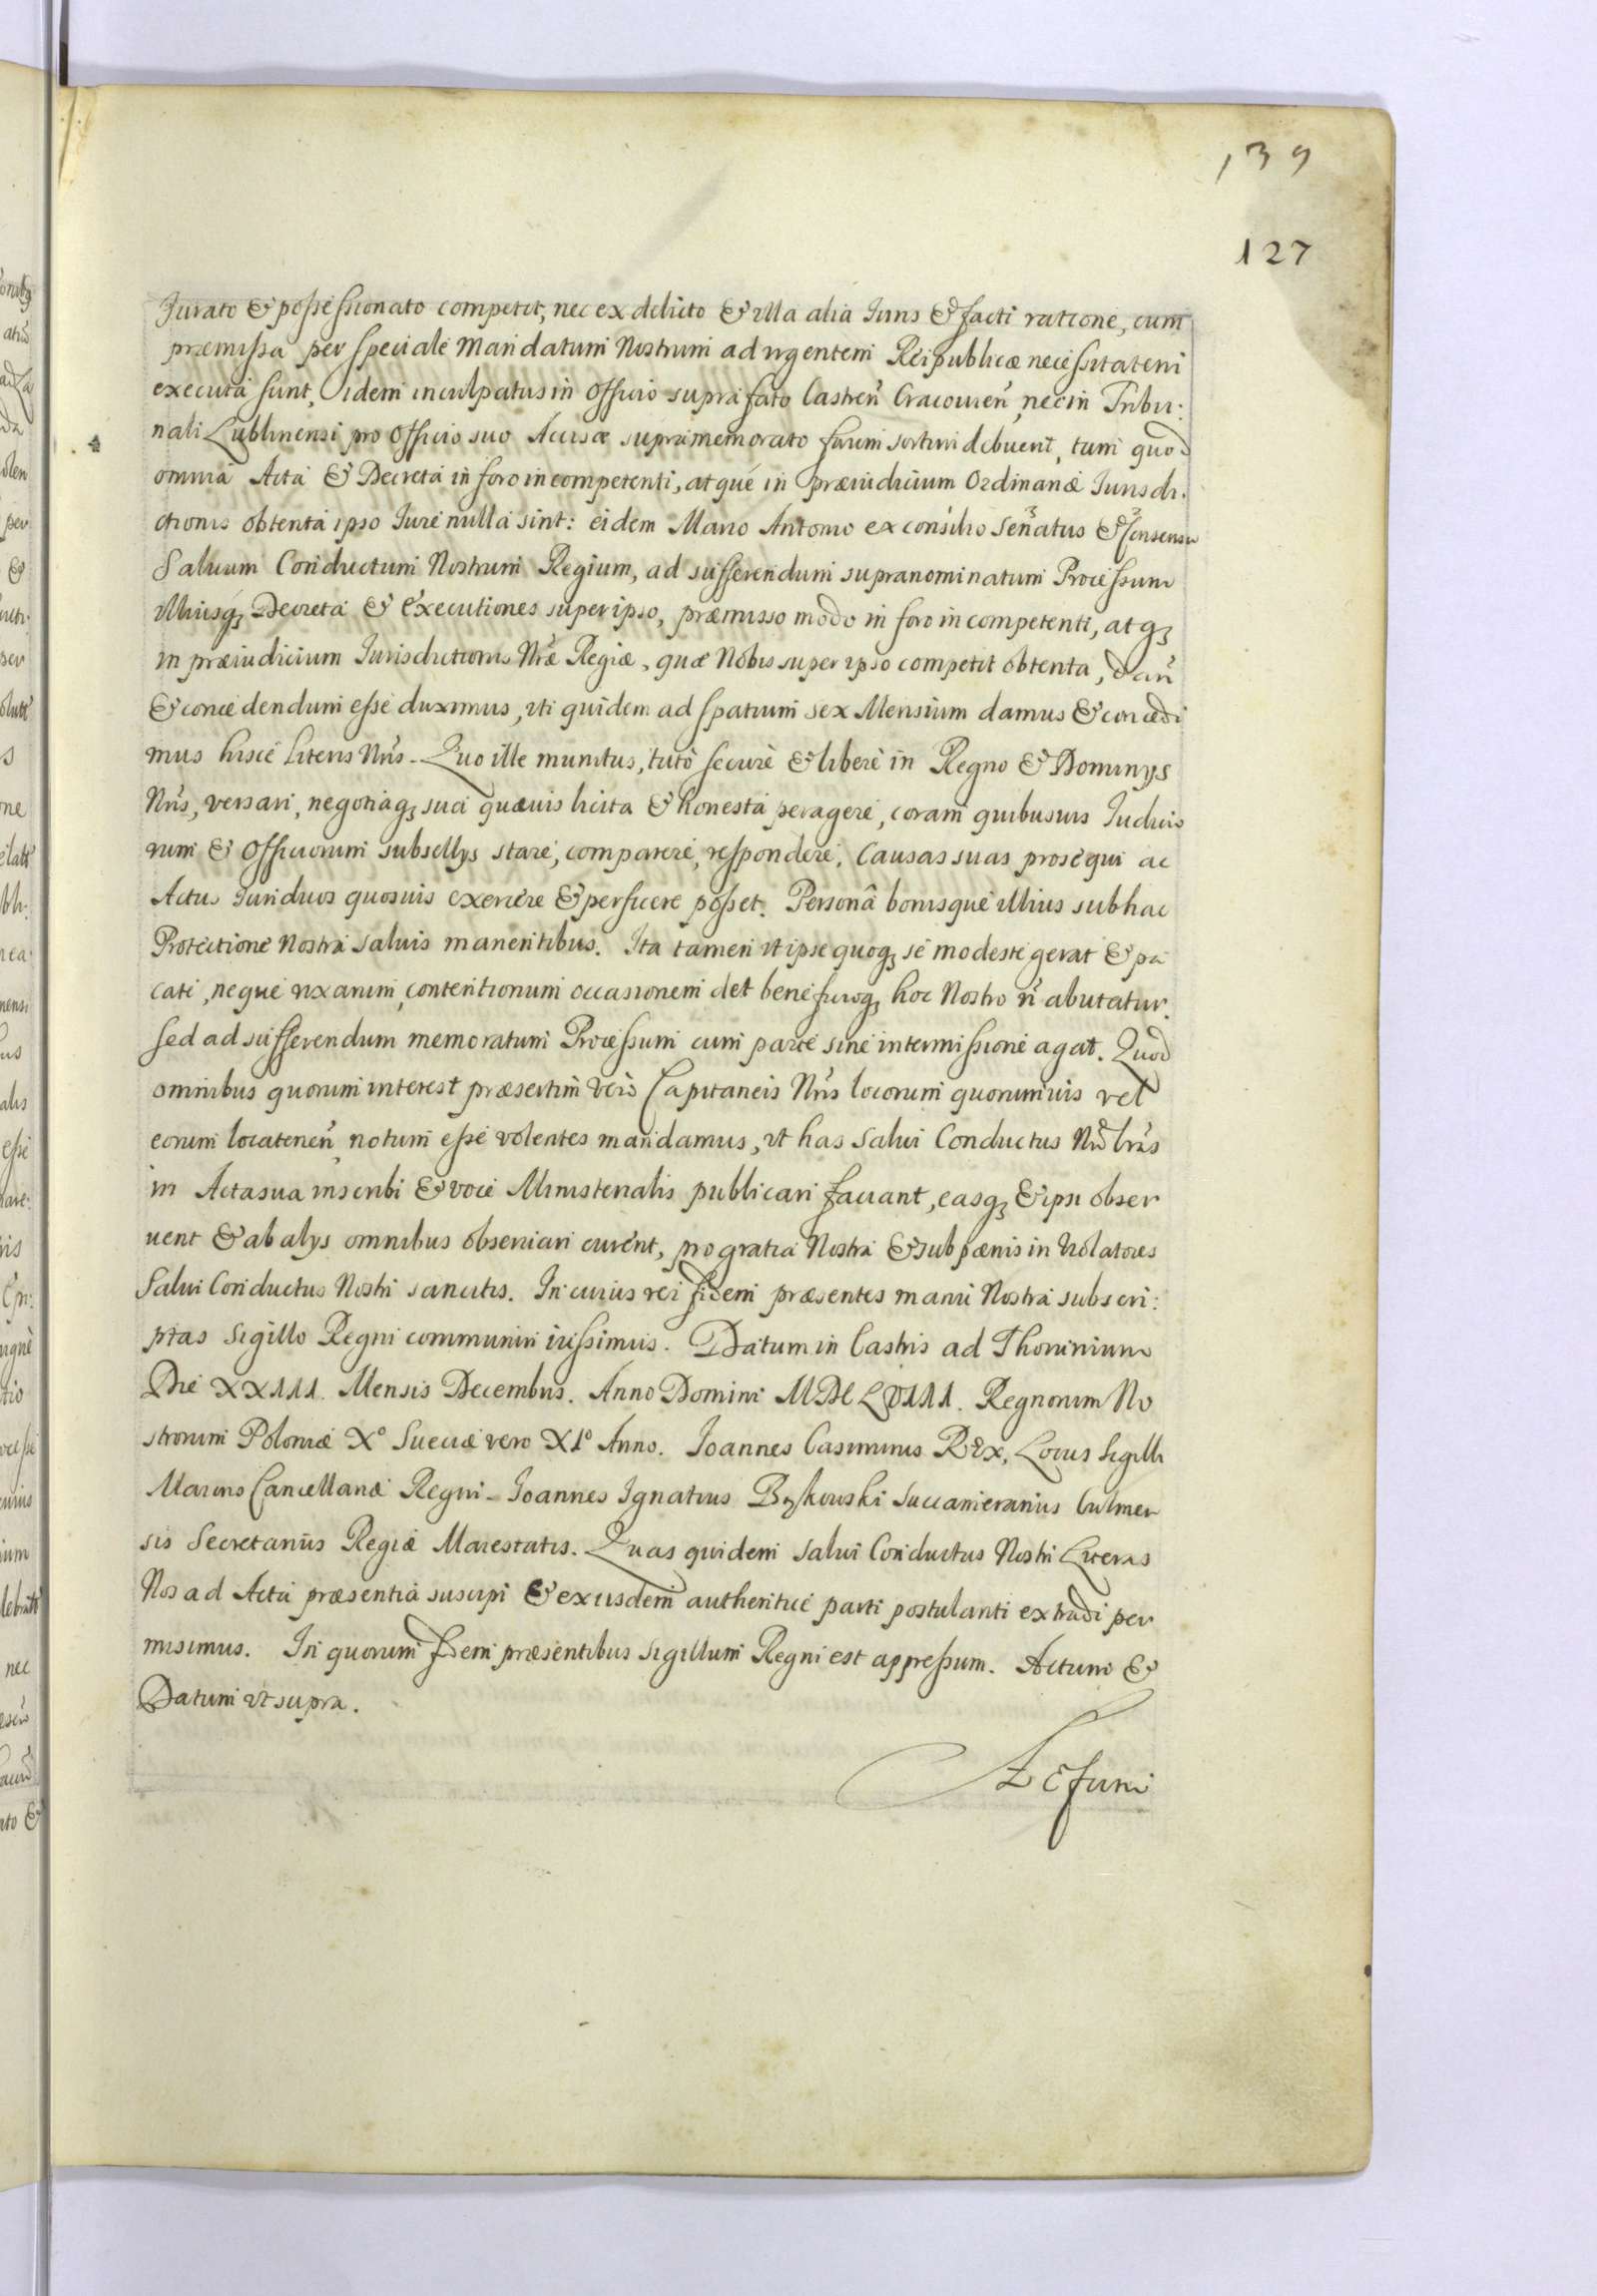 139
127
Jurato & possessionato competit, nec ex delicto & illa alia Juris & facti ratione, cum
præmissa per speciale Mandatum Nostrum ad urgentem Reipublicæ necessitatem
executa sunt, idem inculpatus in Officio suprafato Castreñ Cracovieñ, nec in Tribu:
nali Lublinensi pro Officio suo Acisæ supramemorato forum sortiri debuerit, tum quod
omnia Acta & Decreta in foro incompetenti, atque in præiudicium Ordinariæ Jurisdi:
ctionis obtenta ipso Jure nulla sint: eidem Mario Antonio ex consilio Senatus & Consensu
Salvum Conductum Nostrum Regium, ad sufferendum supranominatum Processum
Illiusq3 Decreta & Executiones super ipso, præmisso modo in foro incompetenti, atq3
in præiudicium Jurisdictionis Nræ Regiæ, quæ Nobis super ipso competit obtenta, dañ
& concedendum esse duximus, uti quidem ad spatium sex Mensium damus & concedi
mus hisce Literis Nris. Quo ille munitus, tutò securè & liberè in Regno & Dominys
Nris, versari, negotiaq3 sua quævis licita & honesta peragere, coram quibusvis Judicio
rum & Officiorum subsellys stare, comparere, respondere, Causas suas prosequi ac
Actus Juridicos quosvis exercere & perficere posset. Personâ bonisque illius sub hac
Protectione Nostra salvis manentibus. Ita tamen ut ipse quoq3 se modeste gerat & pa
cate, neque rixarum, contentionum occasionem det beneficioq3 hoc Nostro ñ abutatur.
sed ad sufferendum memoratum Processum cum parte sine intermissione agat. Quod
omnibus quorum interest præsertim verò Capitaneis Nris locorum quorumvis vel
eorum locateneñ, notum esse volentes mandamus, ut has Salvi Conductus Nri lras
in Acta sua inscribi & voce Ministerialis publicari faciant, easq3 & ipsi obser
vent & ab alys omnibus observari curent, pro gratia Nostra & sub pænis in violatores
Salvi Conductus Nostri sancitis. In cuius rei fidem præsentes manu Nostra subscri:
ptas Sigillo Regni communiri iussimus. Datum in Castris ad Thorunium
Die XXIII. Mensis Decembris. Anno Domini MDCLVIII. Regnorum No
strorum Poloniæ X° Sueciæ vero XI° Anno. Joannes Casimirus REX, Locus Sigilli
Maioris Cancellariæ Regni. Joannes Ignatius Bąkowski Succamerarius Culmen
sis Secretarius Regiæ Maiestatis. Quas quidem Salvi Conductus Nostri Literas
Nos ad Acta præsentia suscipi & exijsdem authentice parti postulanti extradi per
misimus. In quorum fidem præsentibus Sigillum Regni est appressum. Actum &
Datum ut supra.